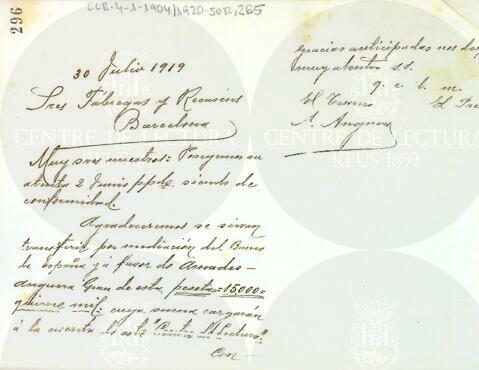 CLR-4-1-1904/1920-SOR,265
296
30 Julio 1919
Sres Fábregas y Recasens
Barcelona
Muy sres nuestros: Poseyemos su
atenta 2 Junio ppdo. siendo de
conformidad.
Agradeceremos se sirvan
transferir por mediación del Banco
de España y á favor de Amadeo
Anguera Grau de esta, pesetas=15,000=
quince mil, cuya suma cargarán
á la cuenta de este "Centro de Lectura".
Con
Gracias anticipadas nos
muy atentos s.s.
q. e. b. m.
El Tesorero
A. Anguera
CENTRE DE LECTURA
CENTRE DE LECTURA
REUS 1859